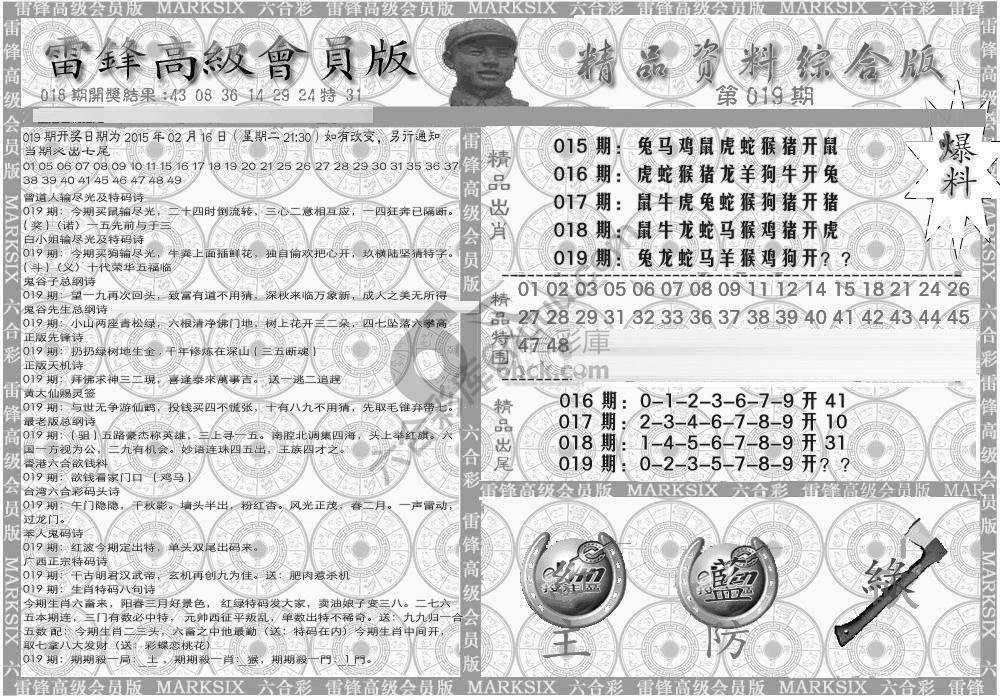 雷锋高级会员版 MARKSIX 六合彩 雷锋高级会员版 MARKSIX 六合彩 雷锋高级会员版 MARKSIX 六合彩 雷锋高级会员版
雷鋒高級會員版
018期開獎結果:43 08 36 14 29 24 特 31
精品资料综合版
第019期
爆料
019期开奖日期为2015年02月16日(星期二21:30)如有改变,另行通知
当期必出七尾
01 05 06 07 08 09 10 11 15 16 17 18 19 20 21 25 26 27 28 29 30 31 35 36 37
38 39 40 41 45 46 47 48 49
曾道人输尽光及特码诗
019期:今期买鼠输尽光,二十四时倒流转,三心二意相互应,一四狂奔已隔断。
{奖}(诺)一五先前与于三
白小姐输尽光及特码诗
019期:今期买狗输尽光,牛粪上面插鲜花,独自偷欢把心开,玖横陆坚猜特字。
{斗}(义)十代荣华五福临
鬼谷子总纲诗
019期:望一九再次回头,致富有道不用猜,深秋来临万象新,成人之美无所得
鬼谷先生总纲诗
019期:小山两座青松绿,六根清净佛门地,树上花开三二朵,四七坠落六攀高
正版先锋诗
019期:扔扔绿树地生金,千年修炼在深山{三五断魂}
正版天机诗
019期:拜佛求神三二現,喜逢泰來萬事吉。送一逃二追趕
黄大仙赐灵签
019期:与世无争游仙鹤,投钱买四不慌张,十有八九不用猜,先取毛锥弃带七。
最老版总纲诗
019期:{驵}五路豪杰称英雄,三上寻一五。南腔北调集四海,头上举红旗。六
国一方视为公,二九有机会。妙语连珠四五出,王族四才之。
香港六合欲钱料
019期:欲钱看家门口 {鸡马}
台湾六合彩码头诗
019期:午门隐隐,千秋影。墙头半出,粉红杏。风光正茂,春二月。一声雷动,
过龙门。
本人鬼码诗
019期:红波今期定出特,单头双尾出码来。
广西正宗特码诗
019期:千古明君汉武帝,玄机再创九为佳。送:肥肉惹杀机
019期:生肖特码八句诗
今期生肖六畜来,阳春三月好景色,红绿特码发大家,卖油娘子变三八。二七六
五本期连,三门有数必中特,元帅西征平叛乱,单数出特不稀奇。送:九九归一合
五数 配:今期生肖二三头,六畜之中他最勤(送:特码在内)今期生肖中间开,
取七拿八大发财(送:彩蝶恋桃花)
019期:期期殺一局:土,期期殺一肖:猴,期期殺一門:1門。
精品出肖
015期:兔马鸡鼠虎蛇猴猪开鼠
016期:虎蛇猴猪龙羊狗牛开兔
017期:鼠牛虎兔蛇猴狗猪开猪
018期:鼠牛龙蛇马猴鸡猪开虎
019期:兔龙蛇马羊猴鸡狗开??
精品特围
01 02 03 05 06 07 08 09 11 12 14 15 18 21 24 26
27 28 29 31 32 33 36 37 39 40 41 42 43 44 45
47 48
精品出尾
016期:0-1-2-3-6-7-9开41
017期:2-3-4-6-7-8-9开10
018期:1-4-5-6-7-8-9开31
019期:0-2-3-5-7-8-9开??
雷锋高级会员版 MARKSIX 六合彩 雷锋高级会员版 MARK
主
防
綠
雷锋高级会员版 MARKSIX 六合彩 雷锋高级会员版 MARKSIX 六合彩 雷锋高级会员版 MARKSIX 六合彩 雷锋高级会员版